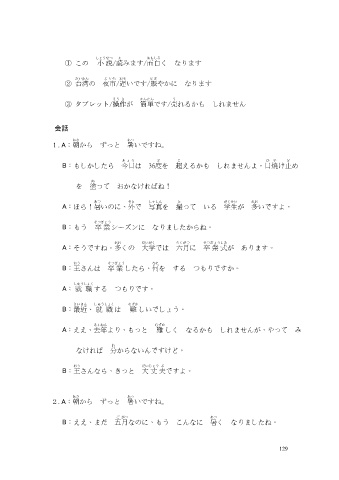 ① この　小説/読みます/面白く　なります
② 台湾の　夜市/近いです/賑やかに　なります
③ タブレット/操作が　簡単です/売れるかも　しれません
会話
1．A：朝から　ずっと　暑いですね。
B：もしかしたら　今日は　36度を　超えるかも　しれませんよ。日焼け止め
を　塗って　おかなければね！
A：ほら！暑いのに、外で　写真を　撮って　いる　学生が　多いですよ。
B：もう　卒業シーズンに　なりましたからね。
A：そうですね。多くの　大学では　六月に　卒業式が　あります。
B：王さんは　卒業したら、何を　する　つもりですか。
A：就職する　つもりです。
B：最近、就職は　難しいでしょう。
A：ええ、去年より、もっと　難しく　なるかも　しれませんが、やって　み
なければ　分からないんですけど。
B：王さんなら、きっと　大丈夫ですよ。
2．A：朝から　ずっと　暑いですね。
B：ええ、まだ　五月なのに、もう　こんなに　暑く　なりましたね。
129